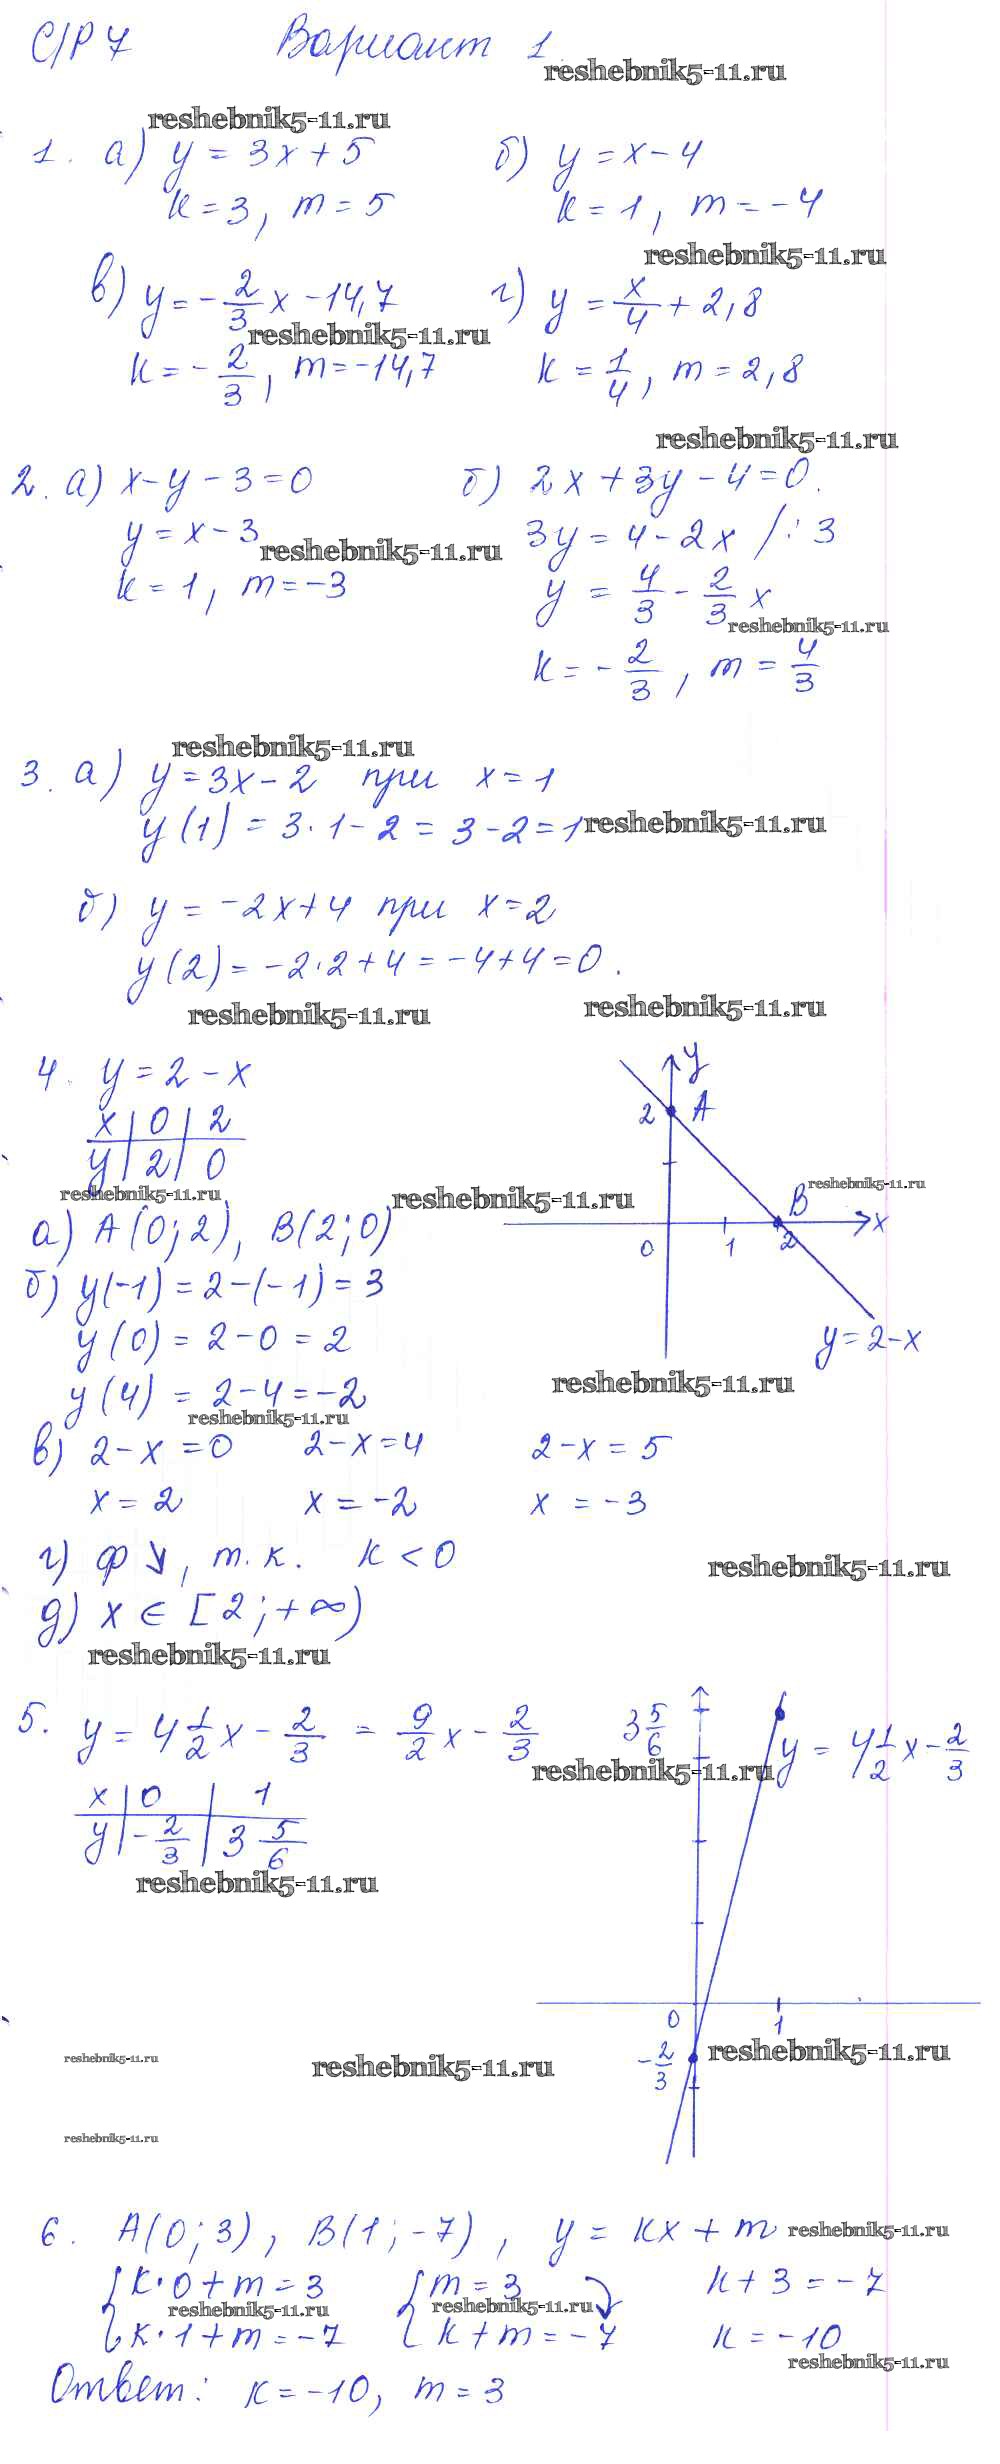 С/Р 7 Вариант 1
reshebnik5-11.ru
reshebnik5-11.ru
1. а) y = 3x + 5 б) y = x - 4
k = 3, m = 5 k = 1, m = -4
reshebnik5-11.ru
в) y = -2/3 x - 14,7 г) y = x/4 + 2,8
reshebnik5-11.ru
k = -2/3, m = -14,7 k = 1/4, m = 2,8
reshebnik5-11.ru
2. а) x - y - 3 = 0 б) 2x + 3y - 4 = 0.
y = x - 3 3y = 4 - 2x /: 3
reshebnik5-11.ru
k = 1, m = -3 y = 4/3 - 2/3 x
reshebnik5-11.ru
k = -2/3, m = 4/3
reshebnik5-11.ru
3. а) y = 3x - 2 при x = 1
y(1) = 3·1 - 2 = 3 - 2 = 1
reshebnik5-11.ru
б) y = -2x + 4 при x = 2
y(2) = -2·2 + 4 = -4 + 4 = 0.
reshebnik5-11.ru
reshebnik5-11.ru
4. y = 2 - x
x | 0 | 2
y | 2 | 0
reshebnik5-11.ru
reshebnik5-11.ru
а) A(0; 2), B(2; 0)
б) y(-1) = 2 - (-1) = 3
y(0) = 2 - 0 = 2
y(4) = 2 - 4 = -2
reshebnik5-11.ru
y
2 A
B
reshebnik5-11.ru
0 1 2 x
y = 2 - x
reshebnik5-11.ru
в) 2 - x = 0 2 - x = 4 2 - x = 5
x = 2 x = -2 x = -3
г) ф ↘, т.к. k < 0
reshebnik5-11.ru
д) x ∈ [2; +∞)
reshebnik5-11.ru
5. y = 4 1/2 x - 2/3 = 9/2 x - 2/3
x | 0 | 1
y | -2/3 | 3 5/6
reshebnik5-11.ru
3 5/6
y = 4 1/2 x - 2/3
reshebnik5-11.ru
0 1
-2/3
reshebnik5-11.ru
reshebnik5-11.ru
reshebnik5-11.ru
reshebnik5-11.ru
6. A(0; 3), B(1; -7), y = kx + m
reshebnik5-11.ru
{ k·0 + m = 3 { m = 3 k + 3 = -7
reshebnik5-11.ru
reshebnik5-11.ru
k·1 + m = -7 k + m = -7 k = -10
reshebnik5-11.ru
Ответ: k = -10, m = 3